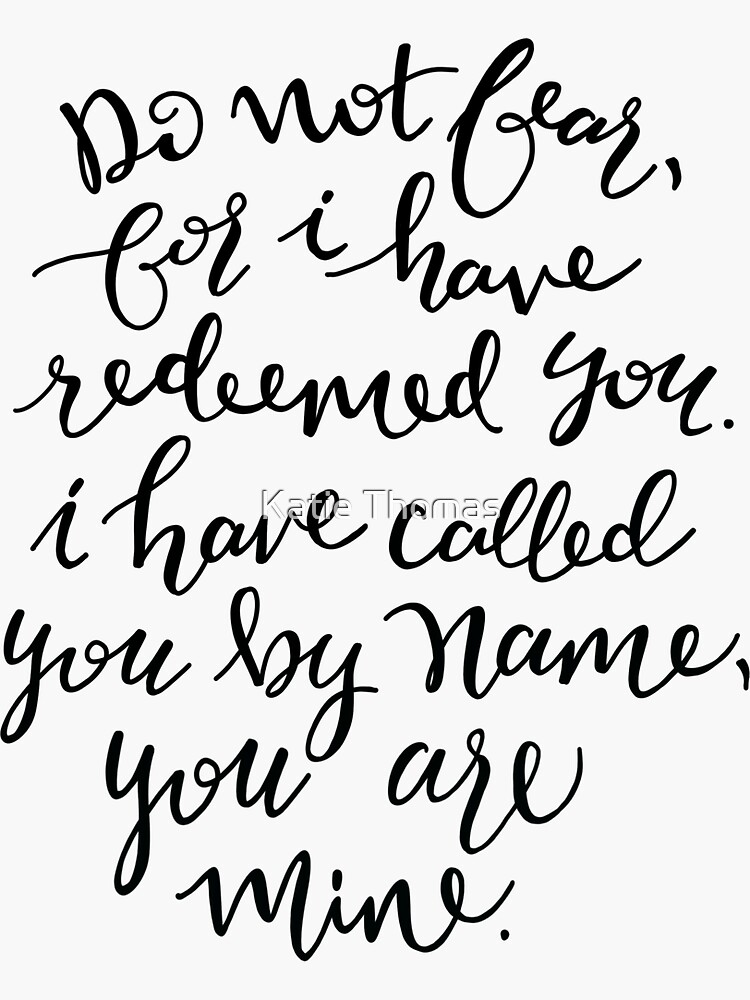 Do not fear,
for i have
redeemed you.
i have called
Katie Thomas
you by name,
you are
mine.